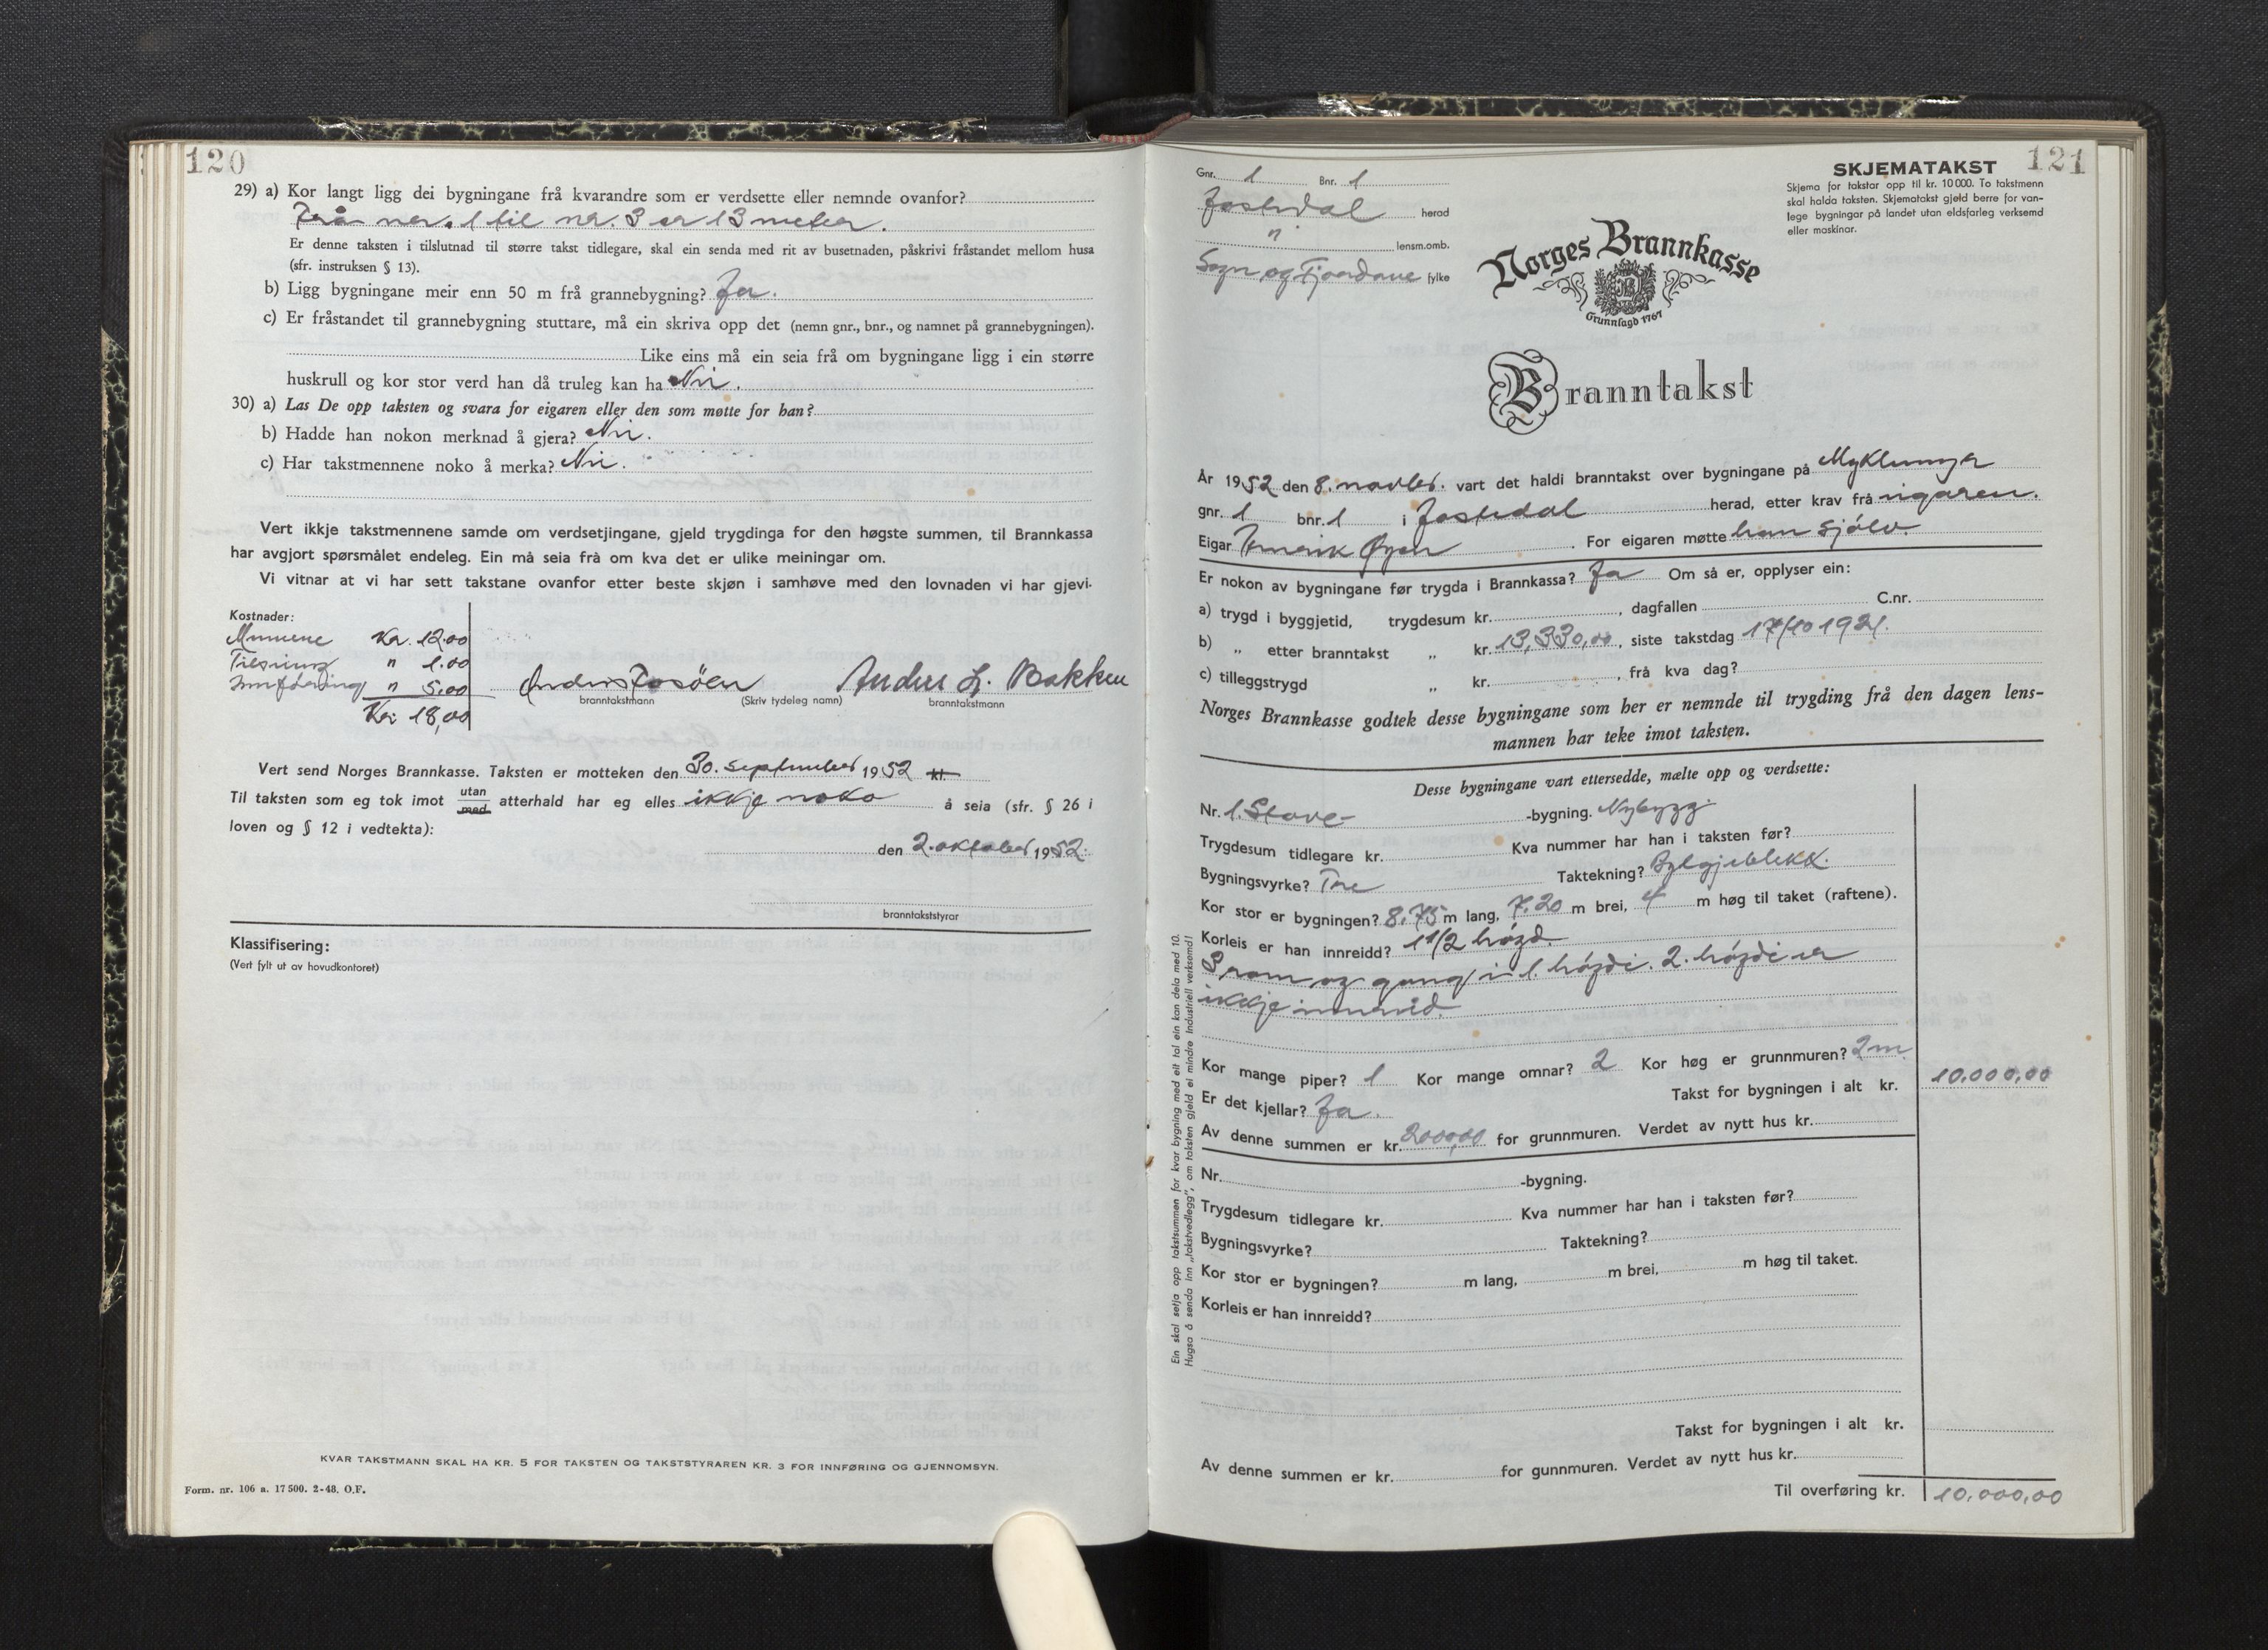 120
29) a) Kor langt ligg dei bygningane frå kvarandre som er verdsette eller nemnde ovanfor?
Frå nr. 1 til nr. 3 er 13 meter.
Er denne taksten i tilslutnad til større takst tidlegare, skal ein senda med rit av busetnaden, påskrivi fråstandet mellom husa
(sfr. instruksen § 13).
b) Ligg bygningane meir enn 50 m frå grannebygning? Ja.
c) Er fråstandet til grannebygning stuttare, må ein skriva opp det (nemn gnr., bnr., og namnet på grannebygningen).
Like eins må ein seia frå om bygningane ligg i ein større
huskrull og kor stor verd han då truleg kan ha Nei.
30) a) Las De opp taksten og svara for eigaren eller den som møtte for han?
b) Hadde han nokon merknad å gjera? Nei.
c) Har takstmennene noko å merka? Nei.
Vert ikkje takstmennene samde om verdsetjingane, gjeld trygdinga for den høgste summen, til Brannkassa
har avgjort spørsmålet endeleg. Ein må seia frå om kva det er ulike meiningar om.
Vi vitnar at vi har sett takstane ovanfor etter beste skjøn i samhøve med den lovnaden vi har gjevi.
Kostnader:
Mennene Kr. 12.00
" 1.00
Innføring " 5.00
Kr. 18,00
Anders Fosøen Anders L. Bakken
branntakstmann (Skriv tydeleg namn) branntakstmann
Vert send Norges Brannkasse. Taksten er motteken den 30. September 1952 kl.
Til taksten som eg tok imot utan/med atterhald har eg elles ikkje noko å seia (sfr. § 26 i
loven og § 12 i vedtekta):
den 2. oktober 1952.
branntakststyrar
Klassifisering:
(Vert fylt ut av hovudkontoret)
KVAR TAKSTMANN SKAL HA KR. 5 FOR TAKSTEN OG TAKSTSTYRAREN KR. 3 FOR INNFØRING OG GJENNOMSYN.
Form. nr. 106 a. 17 500. 2-48. O.F.
121
SKJEMATAKST
Skjema for takstar opp til kr. 10 000. To takstmenn
skal halda taksten. Skjematakst gjeld berre for van-
lege bygningar på landet utan eldsfarleg verksemd
eller maskinar.
Gnr. 1 Bnr. 1
Jostedal herad
" lensm.omb.
Sogn og Fjordane fylke
Norges Brannkasse
Grunnlagd 1767
Branntakst
År 1952 den 8. novber. vart det haldi branntakst over bygningane på Myklemyr
gnr. 1 bnr. 1 i Jostedal herad, etter krav frå eigaren.
Eigar Henrik Øyen. For eigaren møtte han sjølv.
Er nokon av bygningane før trygda i Brannkassa? Ja Om så er, opplyser ein:
a) trygd i byggjetid, trygdesum kr. , dagfallen C.nr.
b) „ etter branntakst „ kr. 13,330,00, siste takstdag 17/10 1921.
c) tilleggstrygd „ kr. , frå kva dag?
Norges Brannkasse godtek desse bygningane som her er nemnde til trygding frå den dagen lens-
mannen har teke imot taksten.
Desse bygningane vart ettersedde, mælte opp og verdsette:
Nr. 1. Stove- -bygning. Nybygg.
Trygdesum tidlegare kr. Kva nummer har han i taksten før?
Bygningsvyrke? Tre Taktekning? Bylgjeblekk.
Kor stor er bygningen? 8.75 m lang, 7,20 m brei, 4 m høg til taket (raftene).
Korleis er han innreidd? 1 1/2 høgd.
3 rom og gang i 1. høgdi. 2. høgdi er
ikkje innreid.
Kor mange piper? 1 Kor mange omnar? 2 Kor høg er grunnmuren? 2 m.
Er det kjellar? Ja. Takst for bygningen i alt kr. 10.000,00
Av denne summen er kr. 2000,00 for grunnmuren. Verdet av nytt hus kr.
Nr. -bygning.
Trygdesum tidlegare kr. Kva nummer har han i taksten før?
Bygningsvyrke? Taktekning?
Kor stor er bygningen? m lang, m brei, m høg til taket.
Korleis er han innreidd?
Takst for bygningen i alt kr.
Av denne summen er kr. for gunnmuren. Verdet av nytt hus kr.
Til overføring kr. 10.000,00
Ein skal setja opp takstsummen for kvar bygning med eit tal ein kan dela med 10.
Hugso å senda inn „takstvedlegg", om taksten gjeld ei mindre Industriell verksemd!